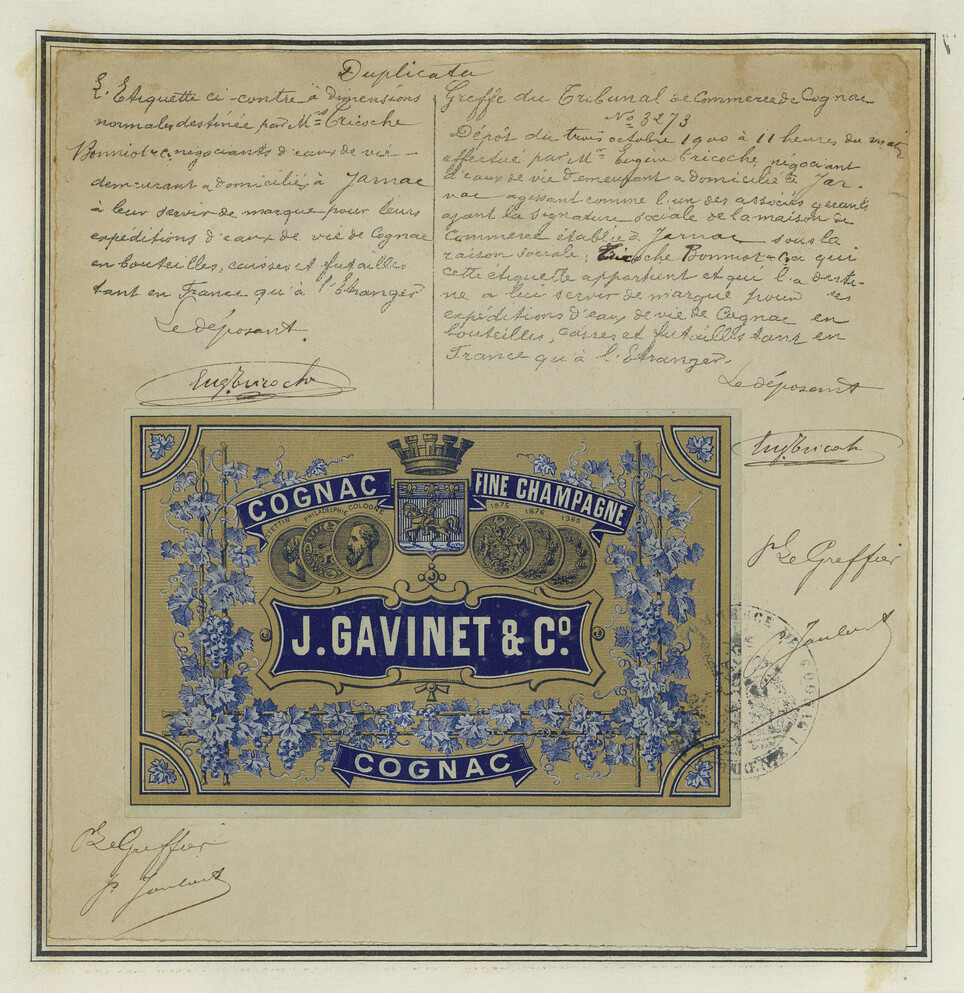 Duplicata
Etiquette ci-contre à dimensions
normales destinée par Mrs Tricoche
Bonniot & Co négociants d'eaux de vie
demeurant & domiciliés à Jarnac
à leur servir de marque pour leurs
expéditions d'eaux de vie de Cognac
en bouteilles, caisses et futailles
tant en France qu'à l'Etranger
Le déposant
Eug. Tricoche
Greffe du Tribunal de Commerce de Cognac
No 3273
Dépôt du trois octobre 1900 à 11 heures du matin
effectué par Mr Eugène Tricoche, négociant
d'eaux de vie demeurant & domicilié à Jar-
nac agissant comme l'un des associés gérants
ayant la signature sociale de la maison de
Commerce établie à Jarnac sous la
raison sociale; Tricoche Bonniot & Co à qui
cette etiquette appartient et qui l'a desti-
né à lui servir de marque pour ses
expéditions d'eaux de vie de Cognac en
bouteilles, caisses et futailles tant en
France qu'à l'Etranger.
Le déposant
Eug. Tricoche
COGNAC
FINE CHAMPAGNE
STETTIN PHILADELPHIE COLOGNE
1875 1876 1865
J. GAVINET & Co.
COGNAC
p. Le Greffier
p. Le Greffier